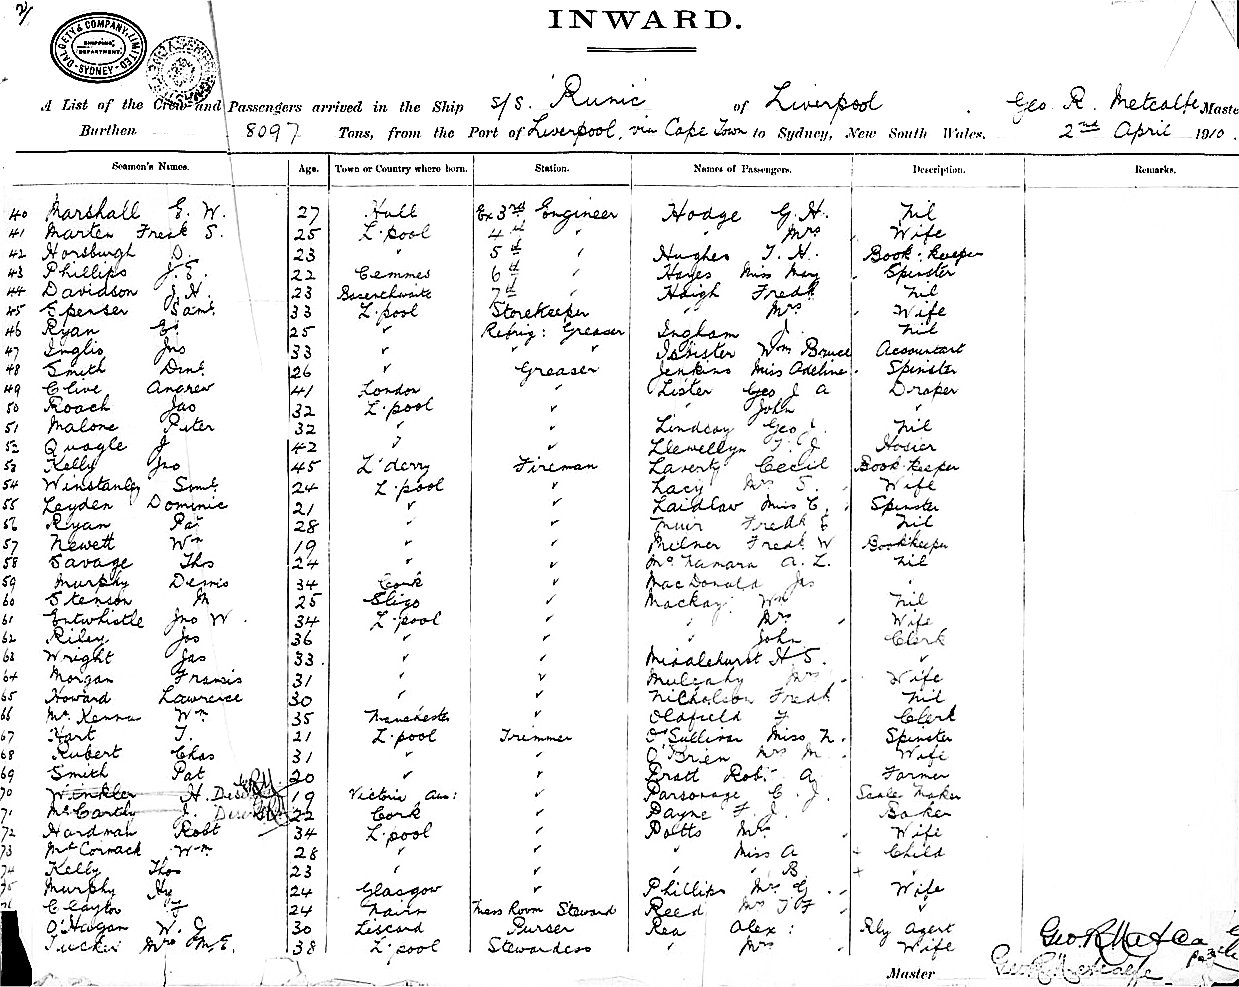 2/
INWARD.
DALGETY & COMPANY, LIMITED SHIPPING DEPARTMENT. SYDNEY
A List of the Crew and Passengers arrived in the Ship s/s. 'Runic' of Liverpool . Geo. R. Metcalfe Maste
Burthen 8097 Tons, from the Port of Liverpool, via Cape Town to Sydney, New South Wales. 2nd April 1910.
Seamen's Names. Age. Town or Country where born. Station. Names of Passengers. Description. Remarks.
40 Marshall E. W. 27 Hull Ex 3rd Engineer Hodge G. H. Nil
41 Marten Fredk S. 25 L'pool 4th " " Mrs Wife
42 Horsburgh D. 23 " 5th " Hughes T. H. Book-keeper
43 Phillips J. E. 22 Cemmes 6th " Hayes Miss May Spinster
44 Davidson J. H. 23 7th " Haigh Fredk Nil
45 Spenser Saml 33 L'pool Storekeeper " Mrs Wife
46 Ryan 25 " Refrig: Greaser Ingham J. Nil
47 Inglis Jno 33 " " " Isbister Wm Bruce Accountant
48 Smith Danl 26 " Greaser Jenkins Miss Adeline Spinster
49 Clive Andrew 41 London " Lister Geo J A Draper
50 Roach Jas 32 L'pool " " John "
51 Malone Peter 32 " " Lindsay Geo J. Nil
52 Quagle J 42 " " Llewellyn T. J. Hosier
53 Kelly Jno 45 L'derry Fireman Laverty Cecil Book-keeper
54 Winstanley Saml 24 L'pool " Lacy Mrs S. Wife
55 Leyden Dominic 21 " " Laidlaw Miss C. Spinster
56 Ryan Pat 28 " " Muir Fredk E Nil
57 Newett Wm 19 " " Milner Fredk W Bookkeeper
58 Savage Thos 24 " " McNamara A. L. Nil
59 Murphy Dennis 34 Cork " MacDonald Jas "
60 Stenson M 25 Sligo " Mackay Wm Nil
61 Entwhistle Jno W. 34 L'pool " " Mrs Wife
62 Riley Jos 36 " " " John Clerk
63 Wright Jas 33. " " Middlehurst H S. "
64 Morgan Francis 31 " " Mulcahy Mrs Wife
65 Howard Lawrence 30 " " Nicholson Fredk Nil
66 McKenna Wm 35 Manchester " Oldfield F Clerk
67 Hart T. 21 L'pool Trimmer O'Sullivan Miss N. Spinster
68 Rubert Chas 31 " " O'Brien Mrs M. Wife
69 Smith Pat 20 " " Pratt Robt A Farmer
70 Winkler H. 19 Victoria Aus: " Parsonage C. J. Scale Maker
71 McCarthy J. 22 Cork " Payne F. J. Baker
72 Hardman Robt 34 L'pool " Potts Mrs Wife
73 McCormack Wm 28 " " " Miss A + Child
74 Kelly Thos 23 " " " " B + "
75 Murphy Hy 24 Glasgow " Phillips Mrs G Wife
Clayton F 24 Nairn Mess Room Steward Reed Mrs T F "
O'Hagan W. J 30 Liscard Purser Rea Alex: Rly Agent
Tucker Mrs M. E. 38 L'pool Stewardess " Mrs Wife
Master Geo. R. Metcalfe